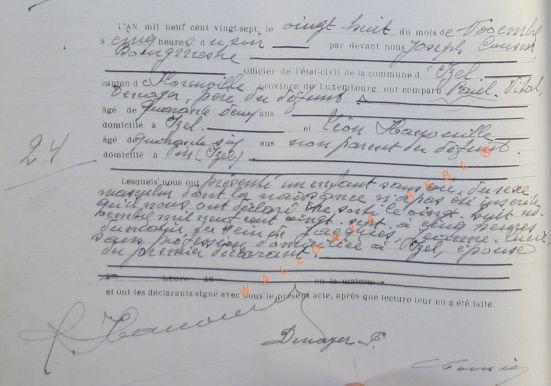 L'AN mil neuf cent vingt-sept, le vingt huit du mois de Novembre
à cinq heures du soir par devant nous Joseph
Bourgmestre
Officier de l'état-civil de la commune d'Izel
canton de Florenville province du Luxembourg, ont comparu Paul Vital
Denayer, père du défunt
âgé de quarante deux ans
domicilié à Izel. et Léon
âgé quarante six ans non parent du défunt.
domicilié à (Izel)
24
Lesquels nous ont présenté un enfant sans vie, du sexe
masculin dont la naissance n'a pas été inscrite
qu'ils nous ont déclaré être sorti le vingt-huit no-
vembre mil neuf cent vingt-sept à cinq heures
du matin, du sein de Jacques Jeanne
sans profession domiciliée à Izel, épouse
du premier déclarant.
à heure du en la maison
et ont les déclarants signé avec nous le présent acte, après que lecture leur en a été faite.
Denayer P.